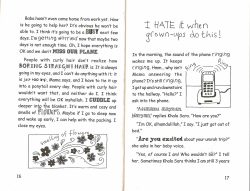 Baba hasn't even come home from work yet. How
is he going to help her? It's obvious he won't be
able to. I think it's going to be a BUSY next few
days. I'm getting worried now that maybe two
days is not enough time. Oh, I hope everything is
OK and we don't MISS OUR PLANE.
People with curly hair don't realize how
BORING STRAIGHT HAIR is. It is always
going in my eyes, and I can't do anything with it. It
is just so me. Mama says, and I have to tie it up
into a ponytail every day. People with curly hair
wouldn't want that, and neither do I. I think
everything will be OK inshallah. I CUDDLE up
deeper into the blanket. It's warm and cozy and
smells of
Maybe if I go to sleep now
and wake up early, I can help with the packing. I
close my eyes.
16
I HATE it when
grown-ups do this!
In the morning, the sound of the phone ringing
wakes me up. It keeps
ringing. Hmm.. why isn't
Mama answering the
phone? It's still ringing.
I get up and run downstairs
to the hallway. "Hello?" I
ask into the phone.
replies Khala Sara. "How are you?"
"I'm OK, alhamdulillah," I say. "I just got out of
bed."
"Are you excited about your umrah trip?"
she asks in her baby voice.
"Yes, of course I am! Who wouldn't be?" I tell
her. Sometimes Khala Sara thinks I am still 3 years
17